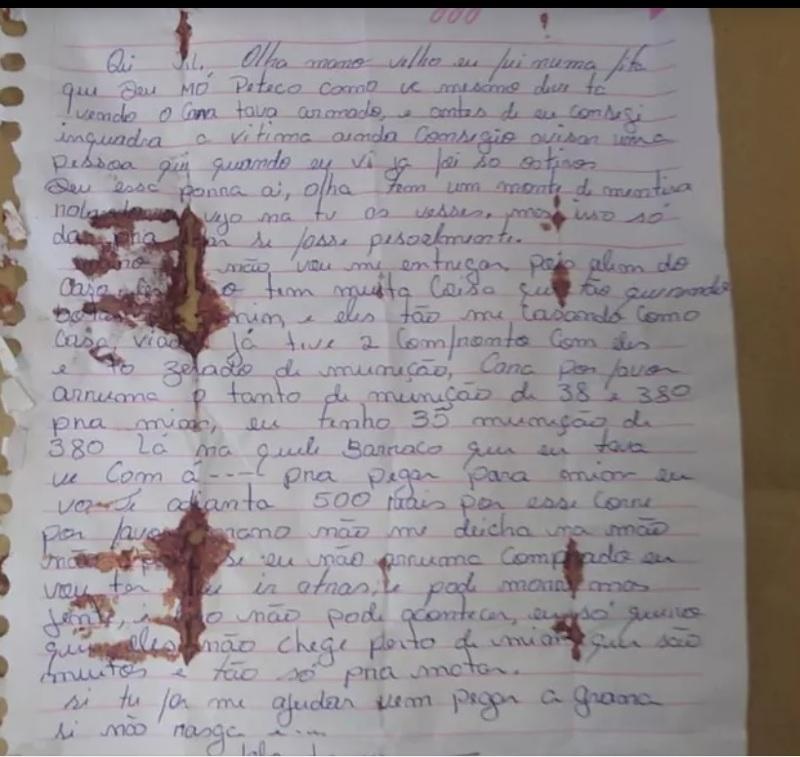 000
Oi Olha mano velho eu fui numa fita
que deu MÓ Peteco como vc mesmo deve tá
vendo o Cara tava armado, e antes de eu consegi
inquadra a vitima ainda Consegio avisar uma
pessoa que quando eu vi já foi so os tiros
Deu essa porra ai, olha tem um monte de mentira
vejo na tv as vesses, mas isso só
da pra se fosse pesoalmente.
não vou me entregar, pois alem do
Caso tem muita Coisa que tão querendo
mim, e eles tão me Casando como
Casa viado já tive 2 Comfronto Com eles
e to zerado de munição, Cara por favor
arruma o tanto de munição de 38 e 380
pra mim, eu tenho 35 munição de
380 Lá na quele Barraco que eu tava
ve Com a ---- pra pegar para mim eu
adianta 500 mais por esse Corre
por favo mano não me deicha na mão
se eu não arruma Comprado eu
vou ter ir atras, e pode morre mas
jente, i não pode acontecer, eu só queiro
que eles não chege perto de mim que são
muitos e tão só pra matar.
si tu for me ajudar vem pegar a grama
si não rasga